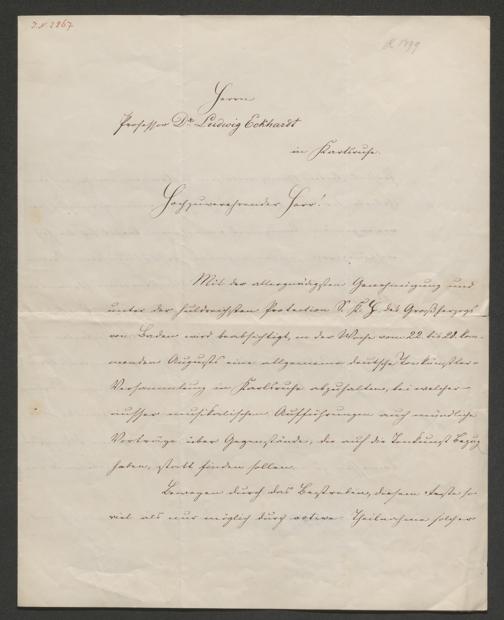 J.N 2267
Herrn
Professor Dr. Ludwig Eckhardt
in Karlsruhe.
Hochzuverehrender Herr!
Mit der allergnädigsten Genehmigung und
unter der huldreichsten Protection S. K. H. des Großherzogs
von Baden wird beabsichtigt, in der Woche vom 22. bis 28. kom-
menden Augusts eine allgemeine deutsche Tonkünstler-
Versammlung in Karlsruhe abzuhalten, bei welcher
ausser musikalischen Aufführungen auch mündliche
Vorträge über Gegenstände, die auf die Tonkunst Bezug
haben, statt finden sollen.
Bewogen durch das Bestreben, diesem Feste so
viel als nur möglich durch active Theilnahme solcher